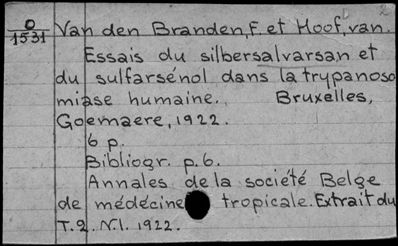 O
1531
Van den Branden, F. et Hoof, van.
Essais du silbersalvarsan et
du sulfarsénol dans la trypanoso
miase humaine. Bruxelles,
Goemaere, 1922.
6 p.
Bibliogr. p. 6.
Annales de la société Belge
de médécine tropicale. Extrait du
T. 2. N. 1. 1922.